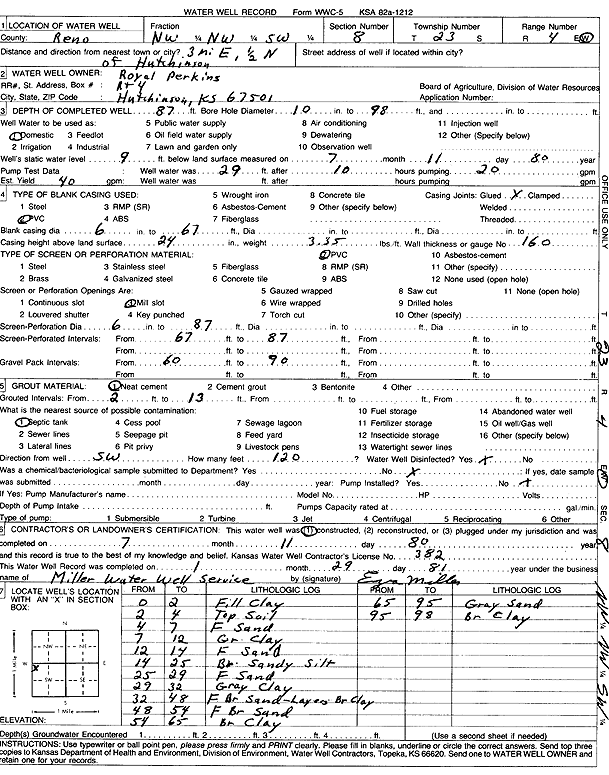 WATER WELL RECORD Form WWC-5 KSA 82a-1212
1 LOCATION OF WATER WELL Fraction Section Number Township Number Range Number
County: Reno NW ¼ NW ¼ SW ¼ 8 T 23 S R 4 E/W
Distance and direction from nearest town or city? 3 mi E, ½ N Street address of well if located within city?
of Hutchinson
2 WATER WELL OWNER: Royal Perkins
RR#, St. Address, Box #: Rt 4 Board of Agriculture, Division of Water Resources
City, State, ZIP Code: Hutchinson, KS 67501 Application Number:
3 DEPTH OF COMPLETED WELL 87 ft. Bore Hole Diameter 10 in. to 98 ft., and in. to ft.
Well Water to be used as: 5 Public water supply 8 Air conditioning 11 Injection well
1 Domestic 3 Feedlot 6 Oil field water supply 9 Dewatering 12 Other (Specify below)
2 Irrigation 4 Industrial 7 Lawn and garden only 10 Observation well
Well's static water level 9 ft. below land surface measured on 7 month 11 day 80 year
Pump Test Data : Well water was 29 ft. after 10 hours pumping 20 gpm
Est. Yield 40 gpm: Well water was ft. after hours pumping gpm
4 TYPE OF BLANK CASING USED: 5 Wrought iron 8 Concrete tile Casing Joints: Glued X Clamped
1 Steel 3 RMP (SR) 6 Asbestos-Cement 9 Other (specify below) Welded
2 PVC 4 ABS 7 Fiberglass Threaded
Blank casing dia 6 in. to 67 ft., Dia in. to ft., Dia in. to ft.
Casing height above land surface 24 in., weight 3.35 lbs./ft. Wall thickness or gauge No 160
TYPE OF SCREEN OR PERFORATION MATERIAL: 7 PVC 10 Asbestos-cement
1 Steel 3 Stainless steel 5 Fiberglass 8 RMP (SR) 11 Other (specify)
2 Brass 4 Galvanized steel 6 Concrete tile 9 ABS 12 None used (open hole)
Screen or Perforation Openings Are: 5 Gauzed wrapped 8 Saw cut 11 None (open hole)
1 Continuous slot 3 Mill slot 6 Wire wrapped 9 Drilled holes
2 Louvered shutter 4 Key punched 7 Torch cut 10 Other (specify)
Screen-Perforation Dia 6 in. to 87 ft., Dia in. to ft., Dia in. to ft.
Screen-Perforated Intervals: From 67 ft. to 87 ft., From ft. to ft.
From ft. to ft., From ft. to ft.
Gravel Pack Intervals: From 60 ft. to 90 ft., From ft. to ft.
From ft. to ft., From ft. to ft.
5 GROUT MATERIAL: 1 Neat cement 2 Cement grout 3 Bentonite 4 Other
Grouted Intervals: From 2 ft. to 13 ft., From ft. to ft., From ft. to ft.
What is the nearest source of possible contamination: 10 Fuel storage 14 Abandoned water well
1 Septic tank 4 Cess pool 7 Sewage lagoon 11 Fertilizer storage 15 Oil well/Gas well
2 Sewer lines 5 Seepage pit 8 Feed yard 12 Insecticide storage 16 Other (specify below)
3 Lateral lines 6 Pit privy 9 Livestock pens 13 Watertight sewer lines
Direction from well SW How many feet 120 ? Water Well Disinfected? Yes X No
Was a chemical/bacteriological sample submitted to Department? Yes No X : If yes, date sample
was submitted month day year: Pump Installed? Yes No X
If Yes: Pump Manufacturer's name Model No. HP Volts
Depth of Pump Intake ft. Pumps Capacity rated at gal./min.
Type of pump: 1 Submersible 2 Turbine 3 Jet 4 Centrifugal 5 Reciprocating 6 Other
6 CONTRACTOR'S OR LANDOWNER'S CERTIFICATION: This water well was (1) constructed, (2) reconstructed, or (3) plugged under my jurisdiction and was
completed on 7 month 11 day 80 year
and this record is true to the best of my knowledge and belief. Kansas Water Well Contractor's License No. 382
This Water Well Record was completed on 1 month 29 day 81 year under the business
name of Miller Water Well Service by (signature) Ezra Miller
7 LOCATE WELL'S LOCATION WITH AN "X" IN SECTION BOX:
FROM TO LITHOLOGIC LOG FROM TO LITHOLOGIC LOG
0 2 Fill Clay 65 95 Gray Sand
2 4 Top Soil 95 98 Br Clay
4 7 F Sand
7 12 Gr. Clay
12 14 F Sand
14 25 Br. Sandy Silt
25 29 F Sand
29 32 Gray Clay
32 48 F Br Sand-Layers Br Clay
48 54 F Br Sand
54 65 Br Clay
N
NW NE
W X E
SW SE
S
1 Mile
1 Mile
ELEVATION:
Depth(s) Groundwater Encountered 1. ft. 2. ft. 3. ft. 4. ft. (Use a second sheet if needed)
INSTRUCTIONS: Use typewriter or ball point pen, please press firmly and PRINT clearly. Please fill in blanks, underline or circle the correct answers. Send top three
copies to Kansas Department of Health and Environment, Division of Environment, Water Well Contractors, Topeka, KS 66620. Send one to WATER WELL OWNER and
retain one for your records.
OFFICE USE ONLY
T 23 R 4 E/W SEC 8 NW ¼ NW ¼ SW ¼